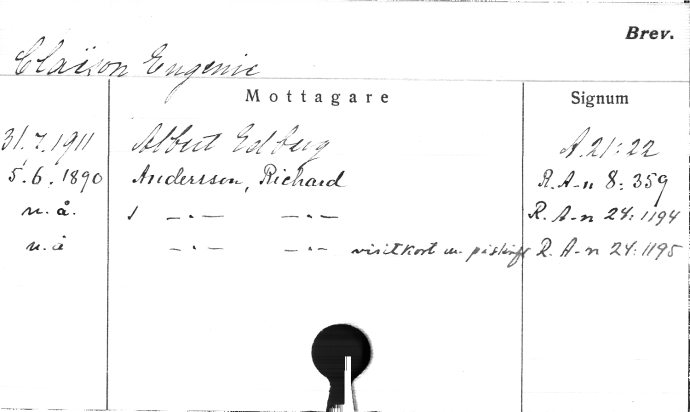 Brev.
Claëson Eugenie
Mottagare Signum
31.7.1911 Albert Edberg A.21:22
5.6.1890 Andersson, Richard R.A-n 8:359
n.å. 1 -.- -.- R.A-n 24:1194
n.å -.- -.- visitkort m. påskrift R.A-n 24:1195